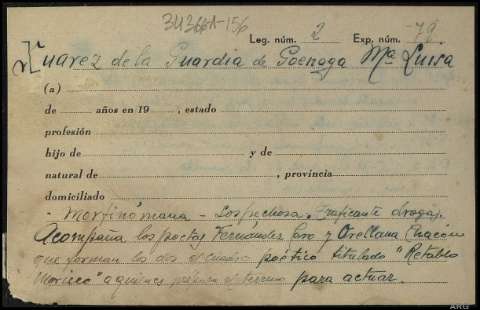 343661-156
Leg. núm. 2 Exp. núm. 79
Suarez de la Guardia de Goenaga Mª Luisa
(a)
de años en 19 , estado
profesión
hijo de y de
natural de , provincia
domiciliado
- Morfinómana - Sospechosa, Traficante drogas.
Acompaña los poetas Fernández y Orellana Chacón
que forman los dos poético titulado "Retablo
Morisco" a quienes para actuar.
ARG